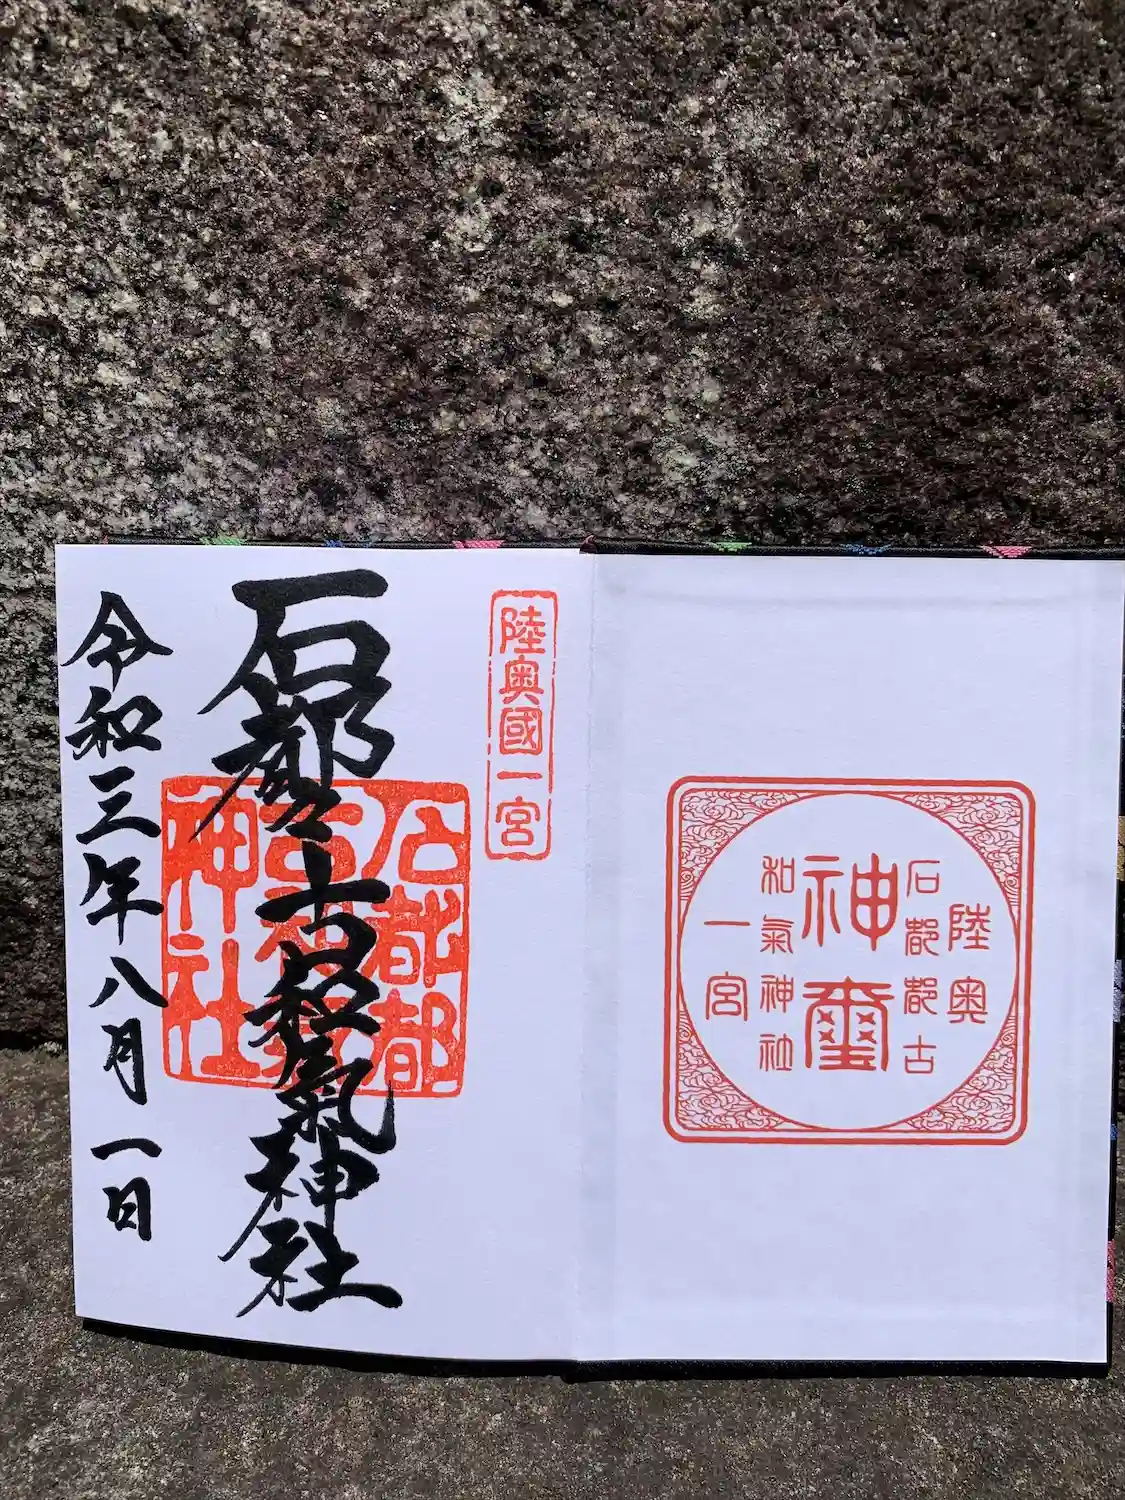 陸奥
石都都古
神璽
和氣神社
一宮
陸奥國一宮
石都々古和氣神社
石都都
古和氣
神社
令和三年八月一日